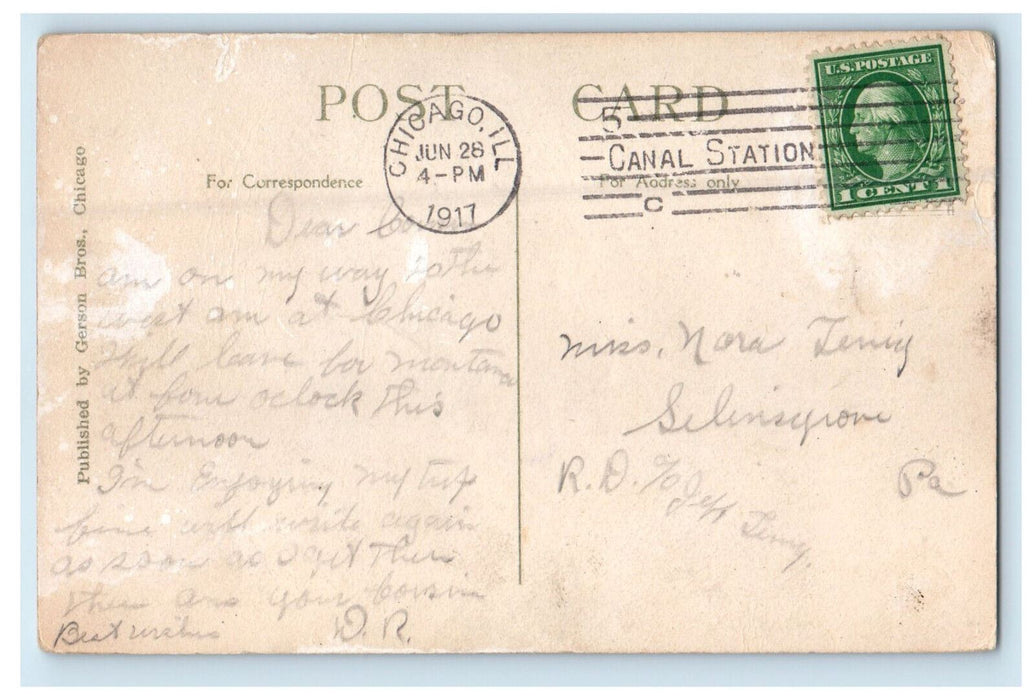 POST CARD
CHICAGO, ILL
JUN 28
4-PM
1917
5
CANAL STATION
C
U.S. POSTAGE
1 CENT 1
For Correspondence
For Address only
Published by Gerson Bros., Chicago
Dear
am on my way to the
west am at Chicago
Will leave for montana
at four oclock this
afternoon
I'm Enjoying my trip
fine will write again
as soon as I get There
your Cousin
Best wishes D. R.
Miss. Nora
Selinsgrove
R.D. Pa